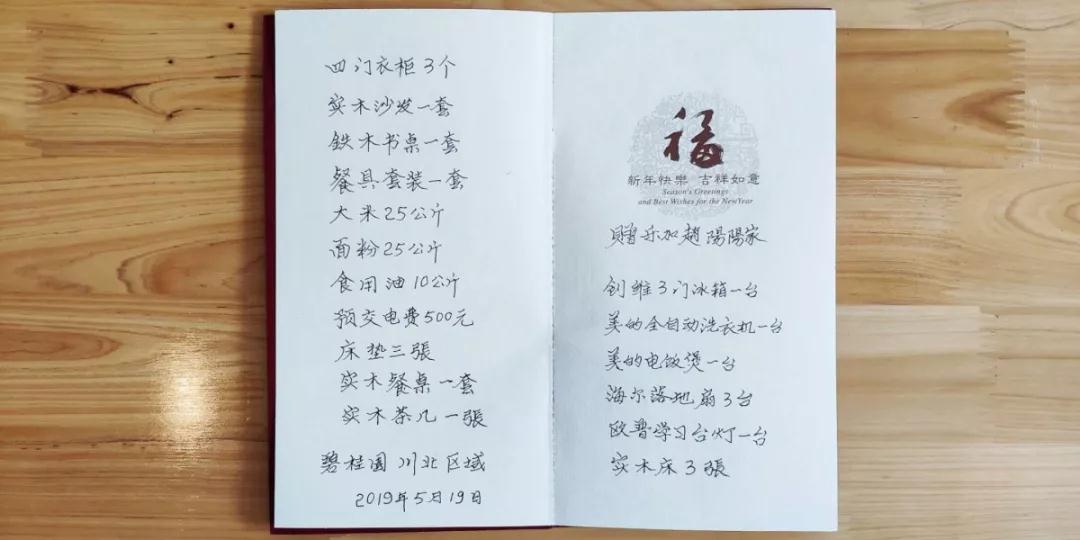 福
新年快樂 吉祥如意
Season's Greetings
and Best Wishes for the NewYear
赠乐加趙陽陽家
创维3门冰箱一台
美的全自动洗衣机一台
美的电饭煲一台
海尔落地扇3台
欧普学习台灯一台
实木床3張
四门衣柜3个
实木沙发一套
鉄木书桌一套
餐具套装一套
大米25公斤
面粉25公斤
食用油10公斤
预交电费500元
床垫三張
实木餐桌一套
实木茶几一張
碧桂園川北区域
2019年5月19日